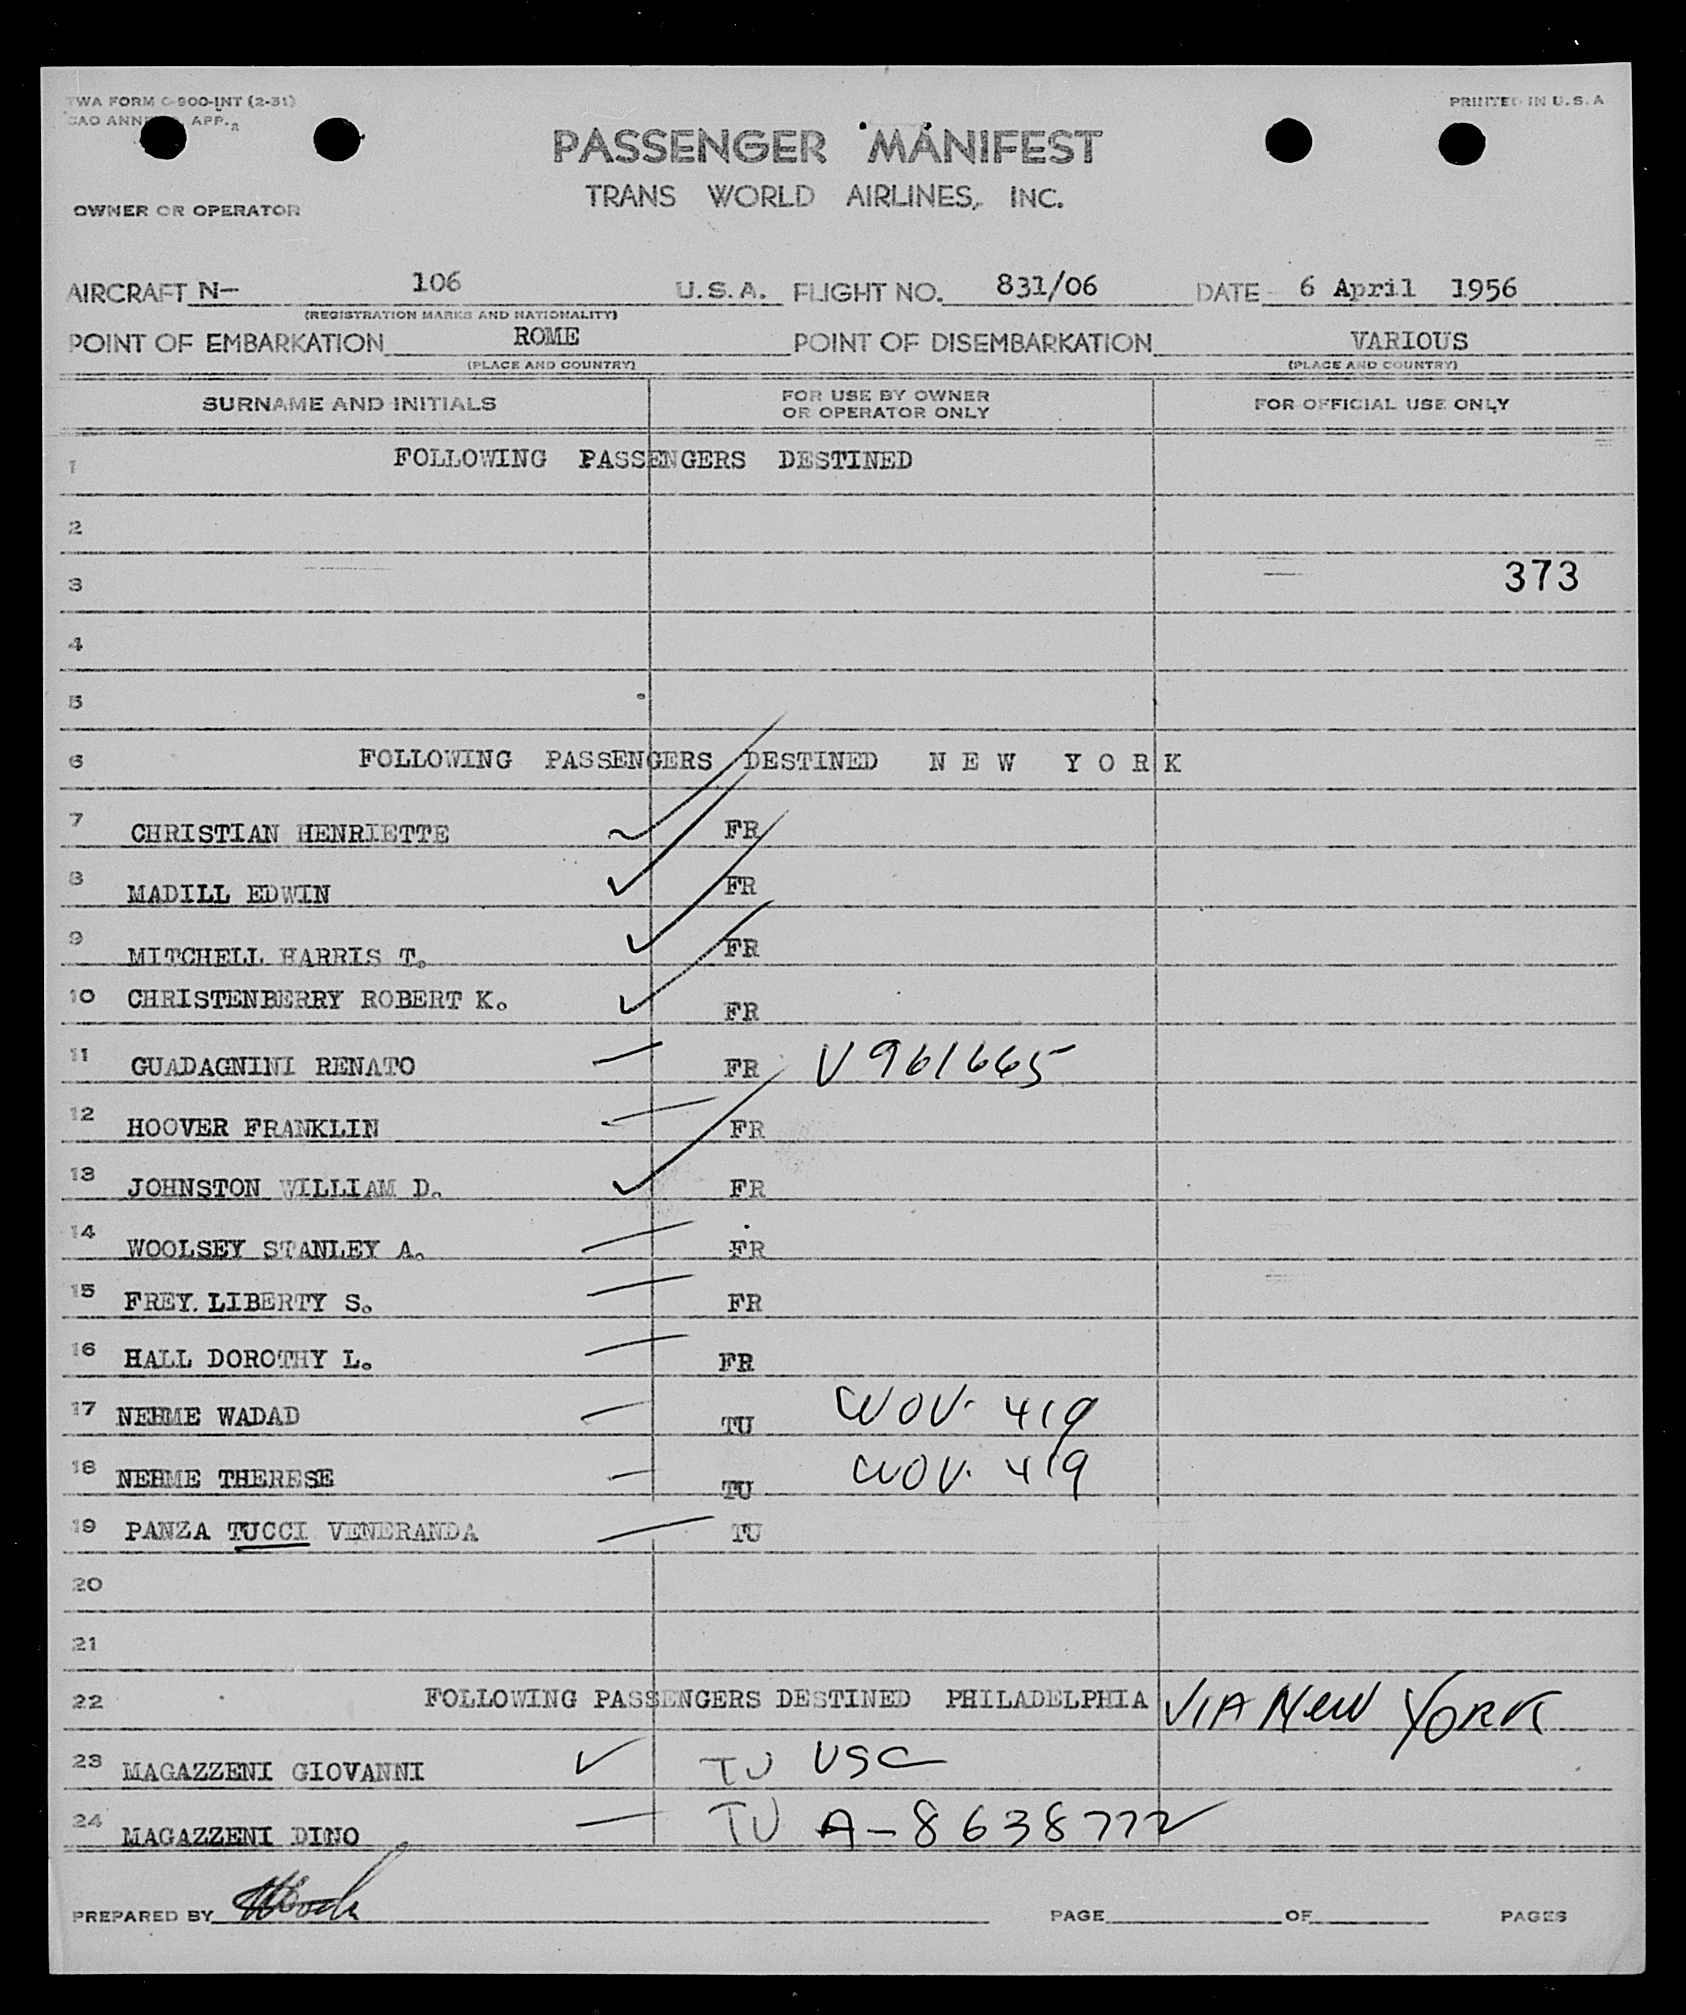 TWA FORM C-900-INT (2-51)
PRINTED IN U.S.A
APP.
PASSENGER MANIFEST
TRANS WORLD AIRLINES, INC.
OWNER OR OPERATOR
AIRCRAFT N- 106 U.S.A. FLIGHT NO. 831/06 DATE 6 April 1956
(REGISTRATION MARKS AND NATIONALITY)
POINT OF EMBARKATION ROME POINT OF DISEMBARKATION VARIOUS
(PLACE AND COUNTRY) (PLACE AND COUNTRY)
SURNAME AND INITIALS FOR USE BY OWNER OR OPERATOR ONLY FOR OFFICIAL USE ONLY
1 FOLLOWING PASSENGERS DESTINED
2
3 373
4
5
6 FOLLOWING PASSENGERS DESTINED N E W Y O R K
7 CHRISTIAN HENRIETTE FR
8 MADILL EDWIN FR
9 MITCHELL HARRIS T. FR
10 CHRISTENBERRY ROBERT K. FR
11 GUADAGNINI RENATO FR V961665
12 HOOVER FRANKLIN FR
13 JOHNSTON WILLIAM D. FR
14 WOOLSEY STANLEY A. FR
15 FREY. LIBERTY S. FR
16 HALL DOROTHY L. FR
17 NEHME WADAD TU WOV. 419
18 NEHME THERESE TU WOV. 419
19 PANZA TUCCI VENERANDA TU
20
21
22 FOLLOWING PASSENGERS DESTINED PHILADELPHIA VIA NEW YORK
23 MAGAZZENI GIOVANNI TU USC
24 MAGAZZENI DINO TU A-8638772
PREPARED BY PAGE OF PAGES